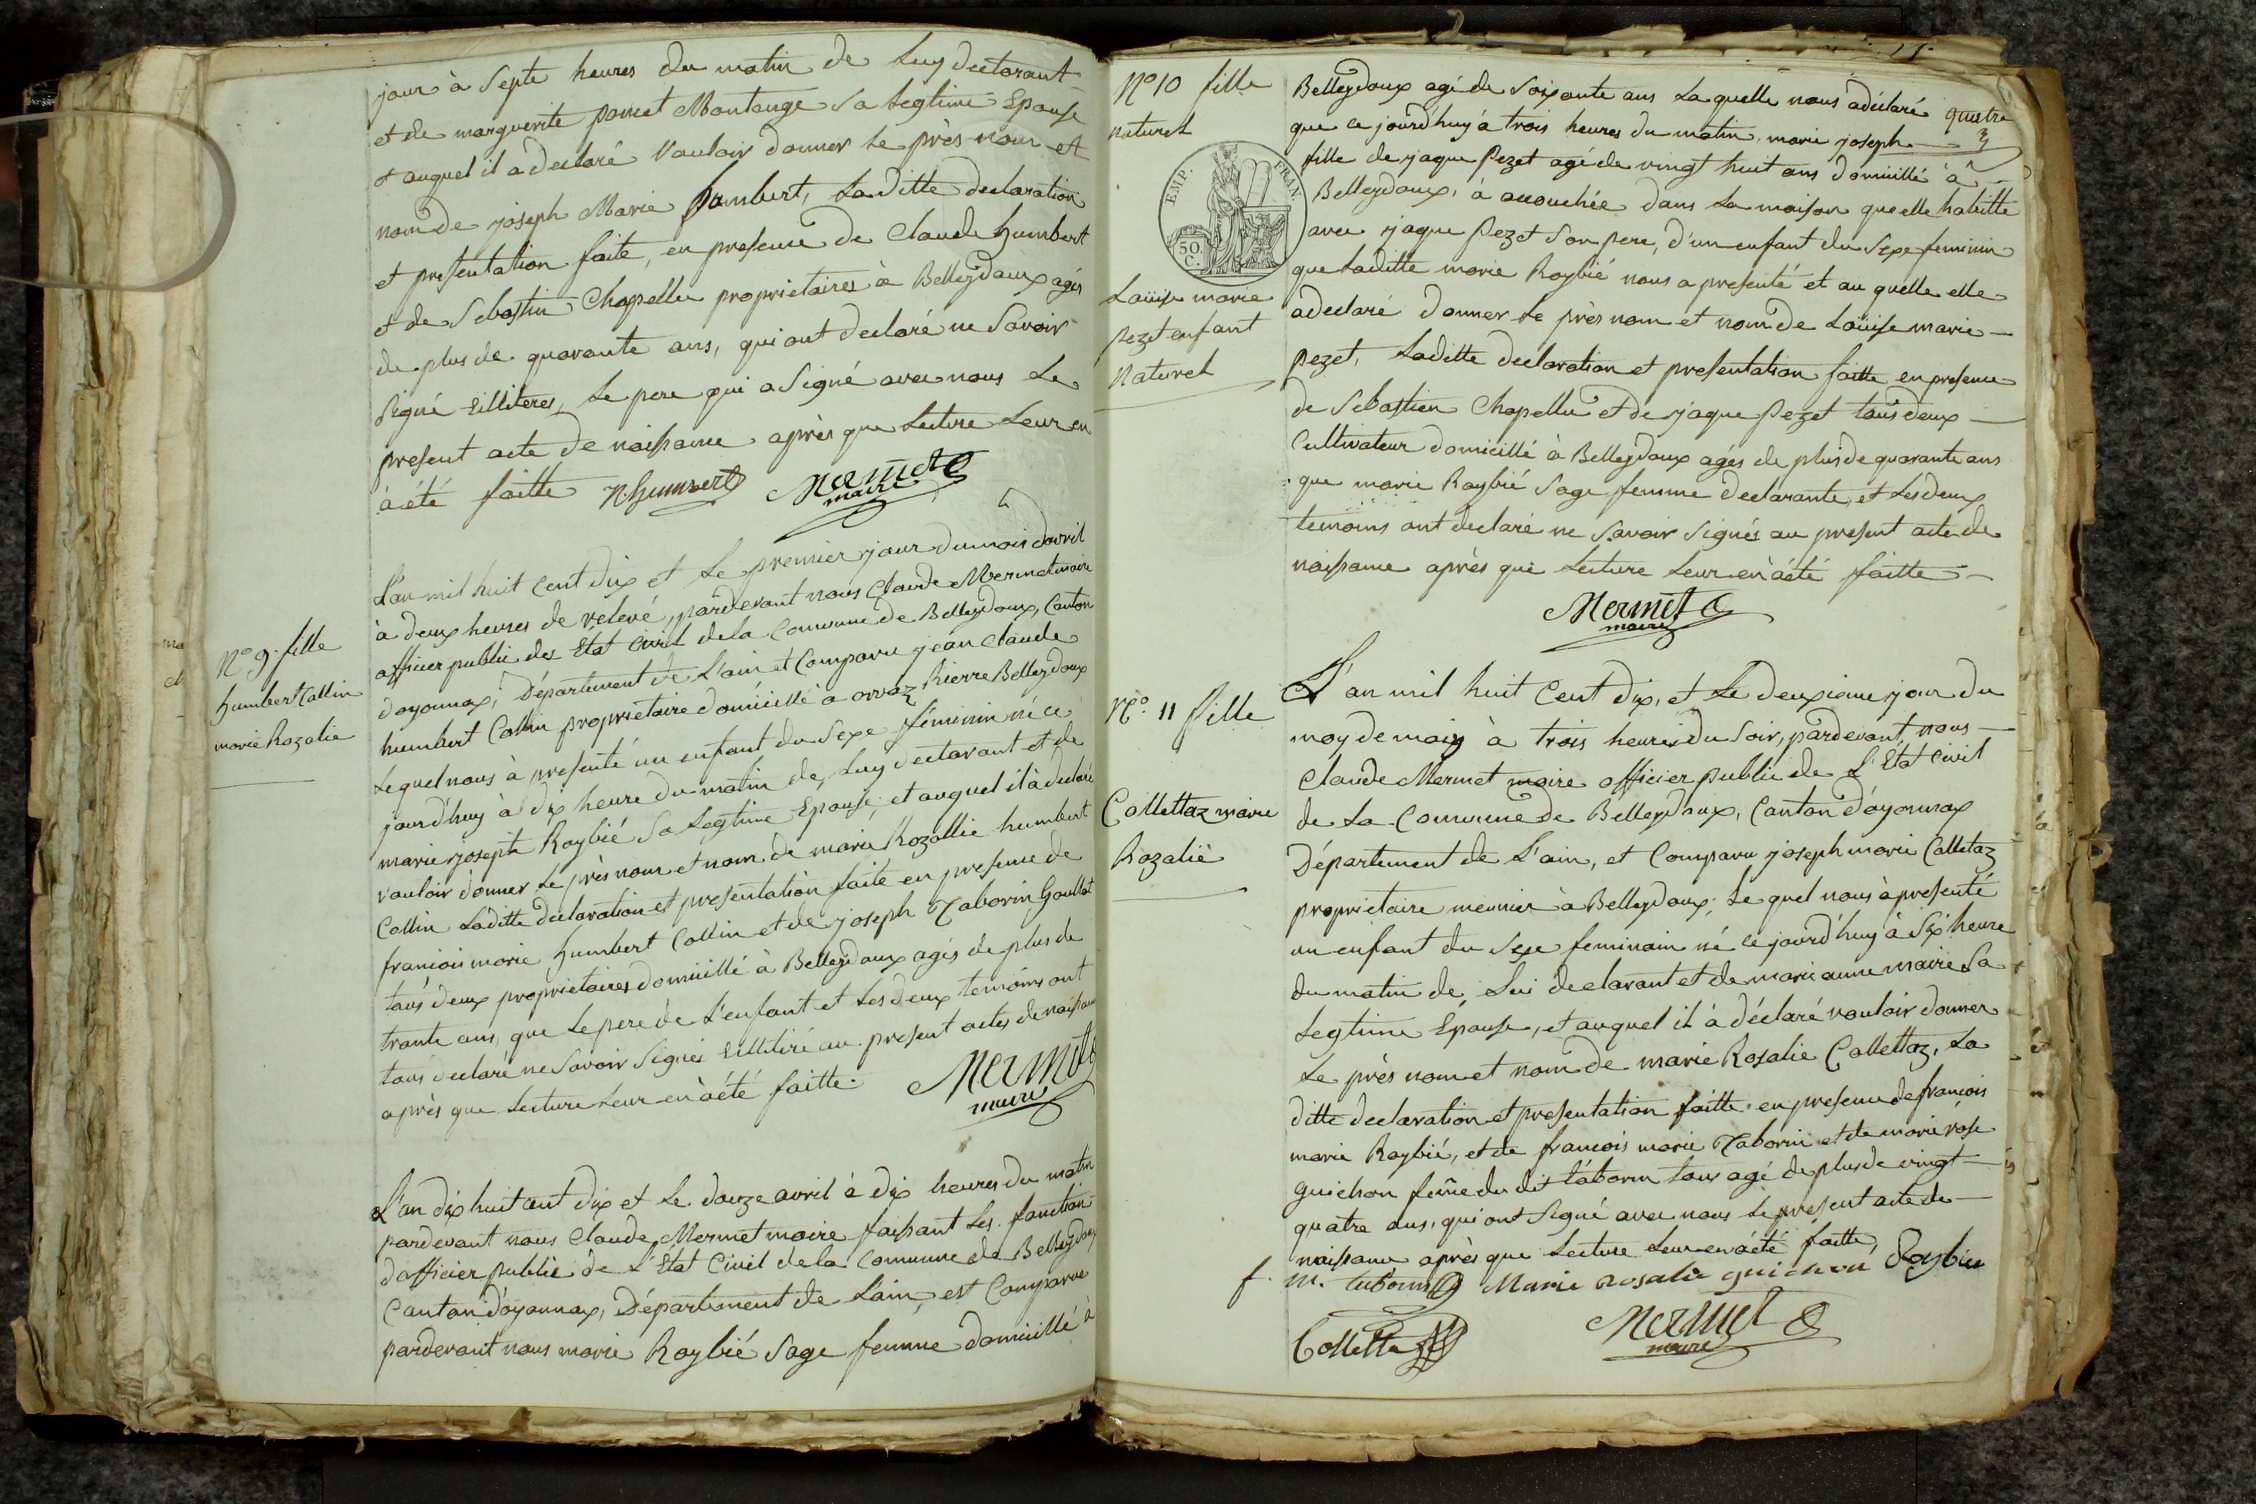 jour à Septe heures du matin de Luy declarant
et de marguerite poncet Montange Sa Legtime Epouse
et auquel il a declaré Vouloir donner Le près nom et
nom de joseph Marie humbert, La ditte declaration
et presentation faite, en presence de Claude humbert
et de Sebastin Chapellu proprietaires à Belleydoux agés
de plus de quarante ans, qui ont declaré ne Savoir
Signé illiteres, Le pere qui a Signé avec nous Le
present acte de naissance après que Lecture Leur en
à été faitte N. humbert Mermet
maire
N° 9. fille
humbert Collin
marie Rozalie
L'an mil huit Cent dix et Le premier jour du mois d'avril
à deux heures de relevé, pardevant nous Claude Mermet maire
officier public des Etat Civil de la Commune de Belleydoux, Canton
doyonnax, Département de L'ain et Comparu jean Claude
humbert Collin proprietaire domicillé à orvaz Rierre Belleydoux
Lequel nous à presenté un enfant du Sexe féminin né ce
jourd'huy à dix heure du matin de Luy declarant et de
marie joseph Raybié Sa Legtime Epouse, et auquel il à declaré
vouloir donner Le près nom et nom de marie Rozallie humbert
Collin Laditte declaration et presentation faite en presence de
francois marie humbert Collin et de joseph Taborin Goullat
tous deux proprietaires domicillé à Belleydoux agés de plus de
trante ans, que Le pere de L'enfant et Les deux temoins ont
tous declaré ne Savoir Signés illitiré au present actes de naissance
après que Lecture Leur en à été faitte. Mermet
maire
L'an dix huit cent dix et Le douze avril à dix heures du matin
pardevant nous Claude Mermet maire faissant Les fonction
d'officier public de L'Etat Civil de la Commune de Belleydoux
Canton d'oyonnax, Département de L'ain, est Comparue
pardevant nous marie Raybié Sage femme domicillé à
N° 10 fille
naturel
EMP. FRAN.
50 C.
Loüise marie
Pezet enfant
Naturel
Belleydoux agé de Soixante ans La quelle nous a déclaré quatre
que ce jourd'huy à trois heures du matin, marie joseph
fille de jaque Pezet agé de vingt huit ans domicillé à
Belleydoux, à accouchée dans La maison que elle habitte
avec jaque Pezet Son pere, d'un enfant du Sexe feminin
que Laditte marie Raybié nous a presenté et au quelle elle
a declaré donner Le près nom et nom de Loüise marie
Pezet, Laditte declaration et presentation faitte en presence
de Sebastien Chapellu et de jaque Pezet tous deux
Cultivateur domicillé à Belleydoux agés de plus de quarante ans
que marie Raybié Sage femme declarante, et Les deux
temoins ont declaré ne Savoir Signés au present acte de
naissance après que Lecture Leur en à été faitte
Mermet
maire
N°. 11 fille
Collettaz marie
Rozalié
L'an mil huit Cent dix, et Le deuxieme jour du
moy de may à trois heures du Soir, pardevant, nous
Claude Mermet maire officier public de L'Etat Civil
de La Commune de Belleydoux, Canton d'oyonnax
Département de L'ain, et Comparu joseph marie Colletaz
proprietaire meunier à Belleydoux, Le quel nous à presenté
un enfant du Sexe feminain né ce jourd'huy à Six heure
du matin de Lui declarant et de marie anne mairie Sa
Legtime Epouse, et auquel il à déclaré vouloir donner
Le près nom et nom de marie Rosalie Collettaz, La
ditte declaration et presentation faitte en presence de francois
marie Raybié, et de francois marie Taborin et de marie rose
guichon feme du dit taborin tous agé de plus de vingt
quatre ans, qui ont Signé avec nous Le present acte de
naissance après que Lecture Leur en à été faitte
f. m. taborin Marie rosalie guichon Raybier
Colletta Mermet
maire